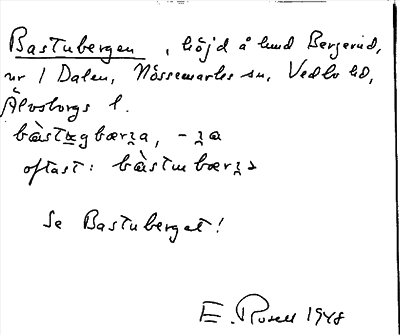 Bastubergen, höjd å hmd Bergerud,
nr 1 Dalen, Nössemarks sn, Vedbo hd,
Älvsborgs l.
bàstɯgbærʒa, - ʒa
oftast: bàstɯbærʒə
Se Bastuberget!
E. Rosell 1948